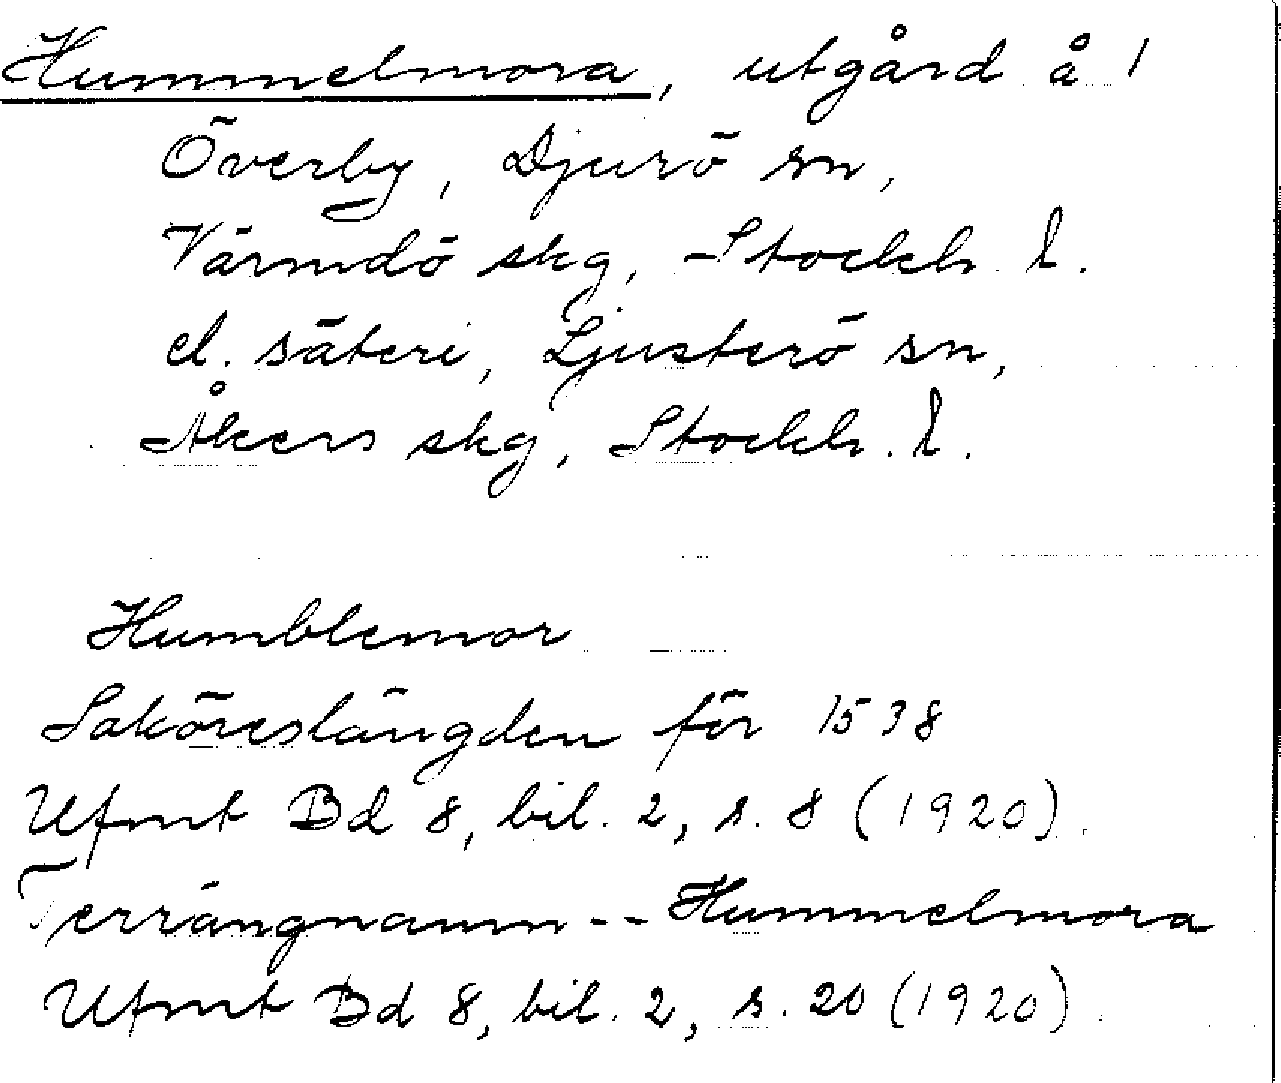 Hummelmora, utgård å 1
Överby, Djurö sn,
Värmdö skg, Stockh. l.
el. säteri, Ljusterö sn,
Åkers skg, Stockh. l.
Humblemor
Saköreslängden för 1538
Ufmt Bd 8, bil. 2, s. 8 (1920).
Terrängnamn -- Hummelmora
Ufmt Bd 8, bil. 2, s. 20 (1920).